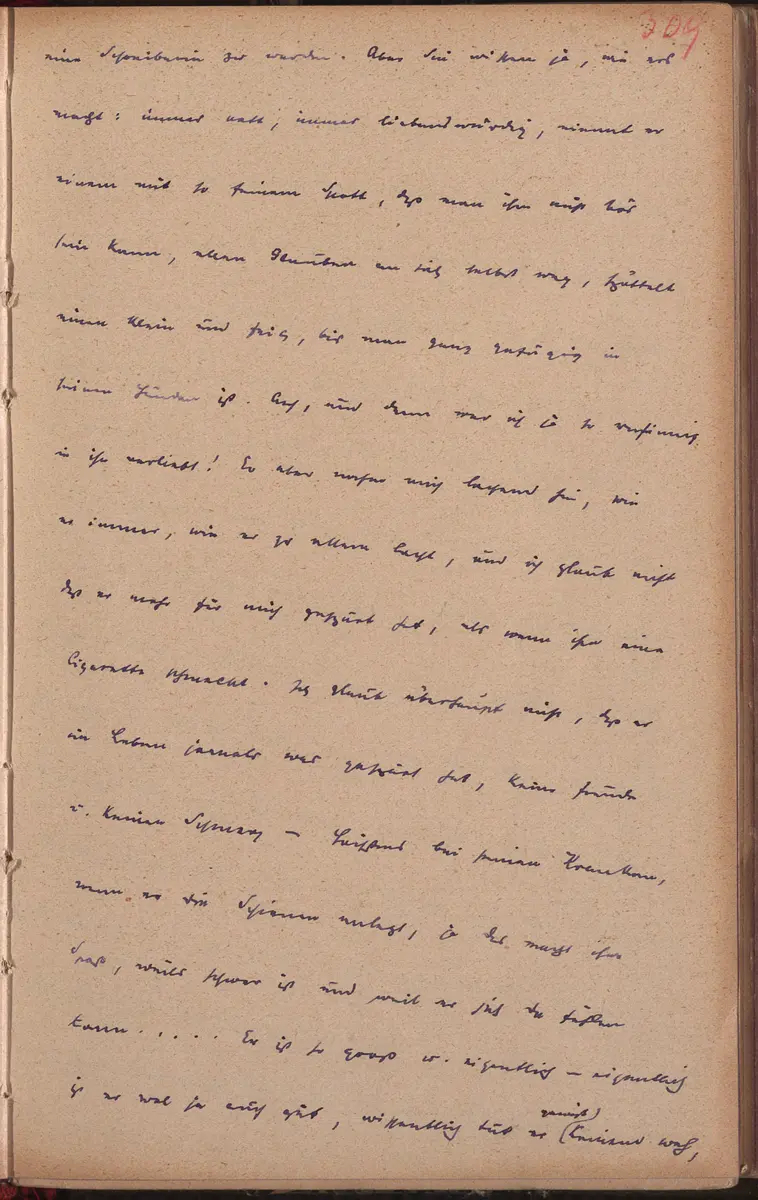 309
eine Schreiberin zu werden. Aber Sie wissen ja, wie ers
macht: immer nett, immer liebenswürdig, nimmt er
einem mit so feinem Spott, daß man ihm nicht bös
sein kann, allen Glauben an sich selbst weg, spöttelt
einen klein und feig, bis man ganz gefügig in
seinen Händen ist. Ach, und dann war ich ja so unsinnig
in ihn verliebt! Er aber nahm mich lachend hin, wie
er immer, wie er zu allem lacht, und ich glaub nicht
daß er mehr für mich gespürt hat, als wenn ihm eine
Cigarette schmeckt. Ich glaub überhaupt nicht, daß er
im Leben jemals was gespürt hat, keine Freude
u. keinen Schmerz – höchstens bei seinen Kranken,
wenn er die Schienen anlegt, ja das macht ihm
Spaß, weils schwer ist und weil er sich da fühlen
kann..... Er ist so groß u. eigentlich – eigentlich
ist er wol ja auch gut, wissentlich tut er (gewiß) keinem weh,